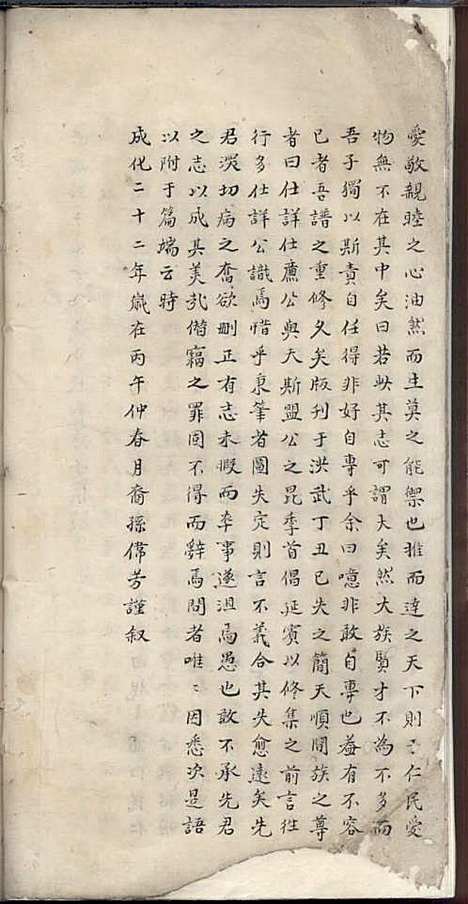 愛敬親睦之心油然而生莫之能禦也推而達之天下則〻仁民愛
物無不在其中矣曰若此其志可謂大矣然大族賢才不為不多而
吾子獨以斯責自任得非好自專乎余曰噫非敢自專也盖有不容
已者吾譜之重修久矣版刊于洪武丁丑已失之簡天順間族之尊
者曰仕詳仕廌公與天斯盟公之昆季首倡延賓以修集之前言徃
行多仕詳公識焉惜乎秉筆者圖失定則言不義合其失愈遠矣先
君深切病之奮欲刪正有志未暇而卒事遂沮焉愚也敢不承先君
之志以成其美㢤僣竊之罪固不得而辭焉問者唯〻因悉次是語
以附于篇端云時
成化二十二年嵗在丙午仲春月裔孫偉芳謹叙